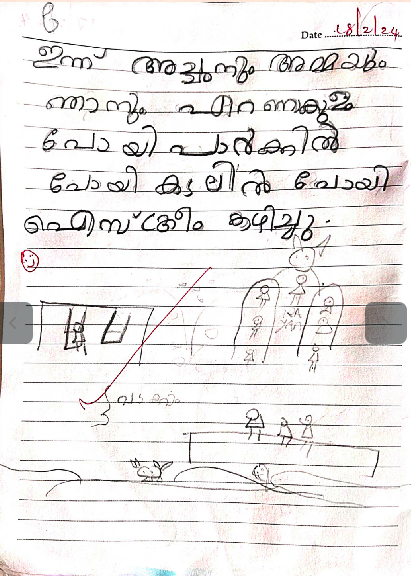 6
Date 18/2/24
ഇന്ന് അച്ഛനും അമ്മയും
ഞാനും എറണാകുളം
പോയി പാർക്കിൽ
പോയി കടലിൽ പോയി
ഐസ്ക്രീം കഴിച്ചു.